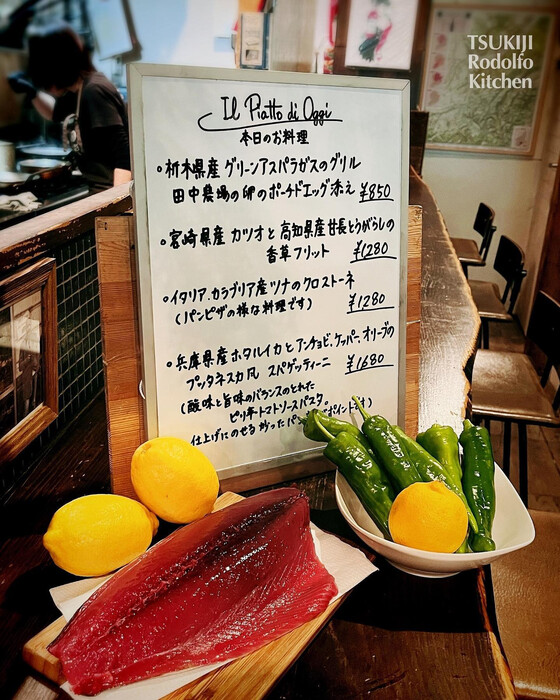 TSUKIJI
Rodolfo
Kitchen
Il Piatto di Oggi
本日のお料理
・栃木県産 グリーンアスパラガスのグリル
田中農場の卵のポーチドエッグ添え ¥850
・宮崎県産 カツオと高知県産甘長とうがらしの
香草フリット ¥1280
・イタリア、カラブリア産ツナのクロストーネ
(パンピザの様な料理です) ¥1,280
・兵庫県産ホタルイカとアンチョビ、ケッパー、オリーブの
プッタネスカ風 スパゲッティーニ ¥1680
(酸味と旨味のバランスのとれた
ピリ辛トマトソースパスタ。
仕上げにのせる
ポイントです)